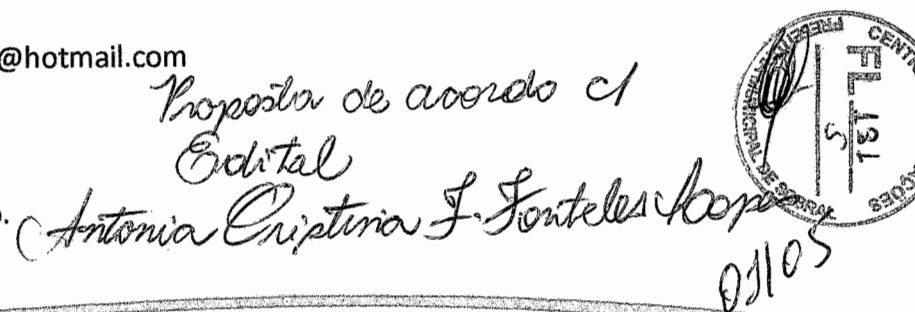 @hotmail.com
Proposta de acordo c/
Edital
Antonia Cristina F. Fonteles
01/05
PREFEITURA MUNICIPAL DE SOBRAL
CENTR
FL
181